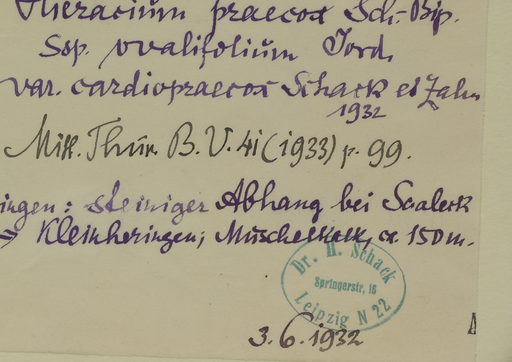 Hieracium praecox Sch.-Bip.
Ssp. ovalifolium Jord.
var. cardiopraecox Schack et Zahn
1932
Mitt. Thür. B. V. 41 (1933) p. 99.
ingen: steiniger Abhang bei Saaleck
Kleinheringen; Muschelkalk, ca 150 m.
Dr. H. Schack
Springerstr. 16
Leipzig N 22
3.6.1932